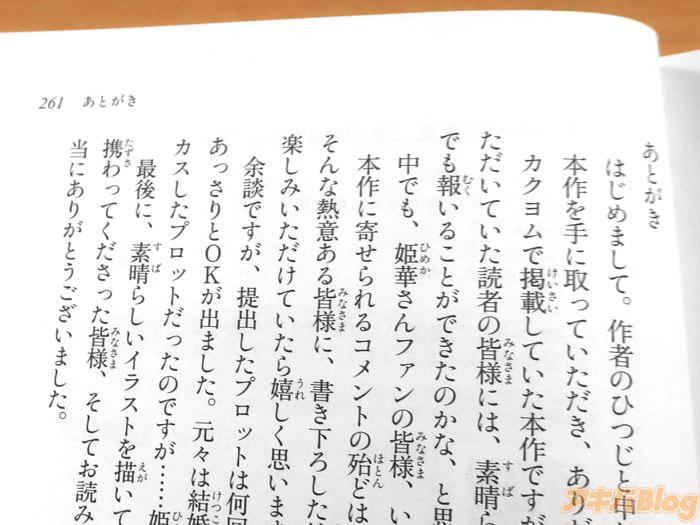 261 あとがき
あとがき
はじめまして。作者のひつじと申
本作を手に取っていただき、あり
カクヨムで掲載していた本作ですが
ただいていた読者の皆様には、素晴ら
でも報いることができたのかな、と思
中でも、姫華さんファンの皆様、い
本作に寄せられるコメントの殆どは
そんな熱意ある皆様に、書き下ろした
楽しみいただけていたら嬉しく思いま
余談ですが、提出したプロットは何回
あっさりとOKが出ました。元々は結婚
カスしたプロットだったのですが……姫
最後に、素晴らしいイラストを描いて
携わってくださった皆様、そしてお読み
当にありがとうございました。
アキバBlog